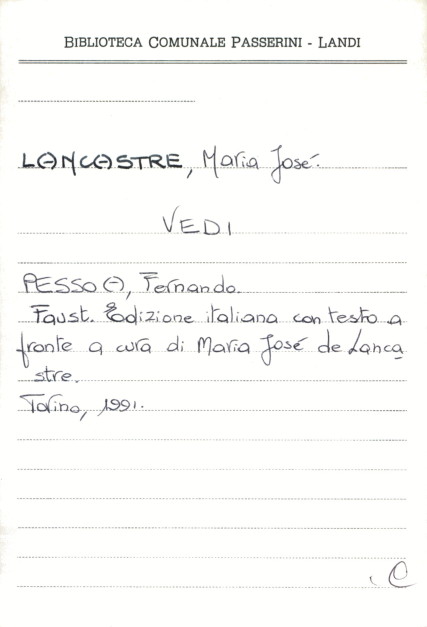 BIBLIOTECA COMUNALE PASSERINI - LANDI
LANCASTRE, Maria José.
VEDI
PESSOA, Fernando.
Faust. Edizione italiana con testo a
fronte a cura di Maria José de Lanca
stre.
Torino, 1991.